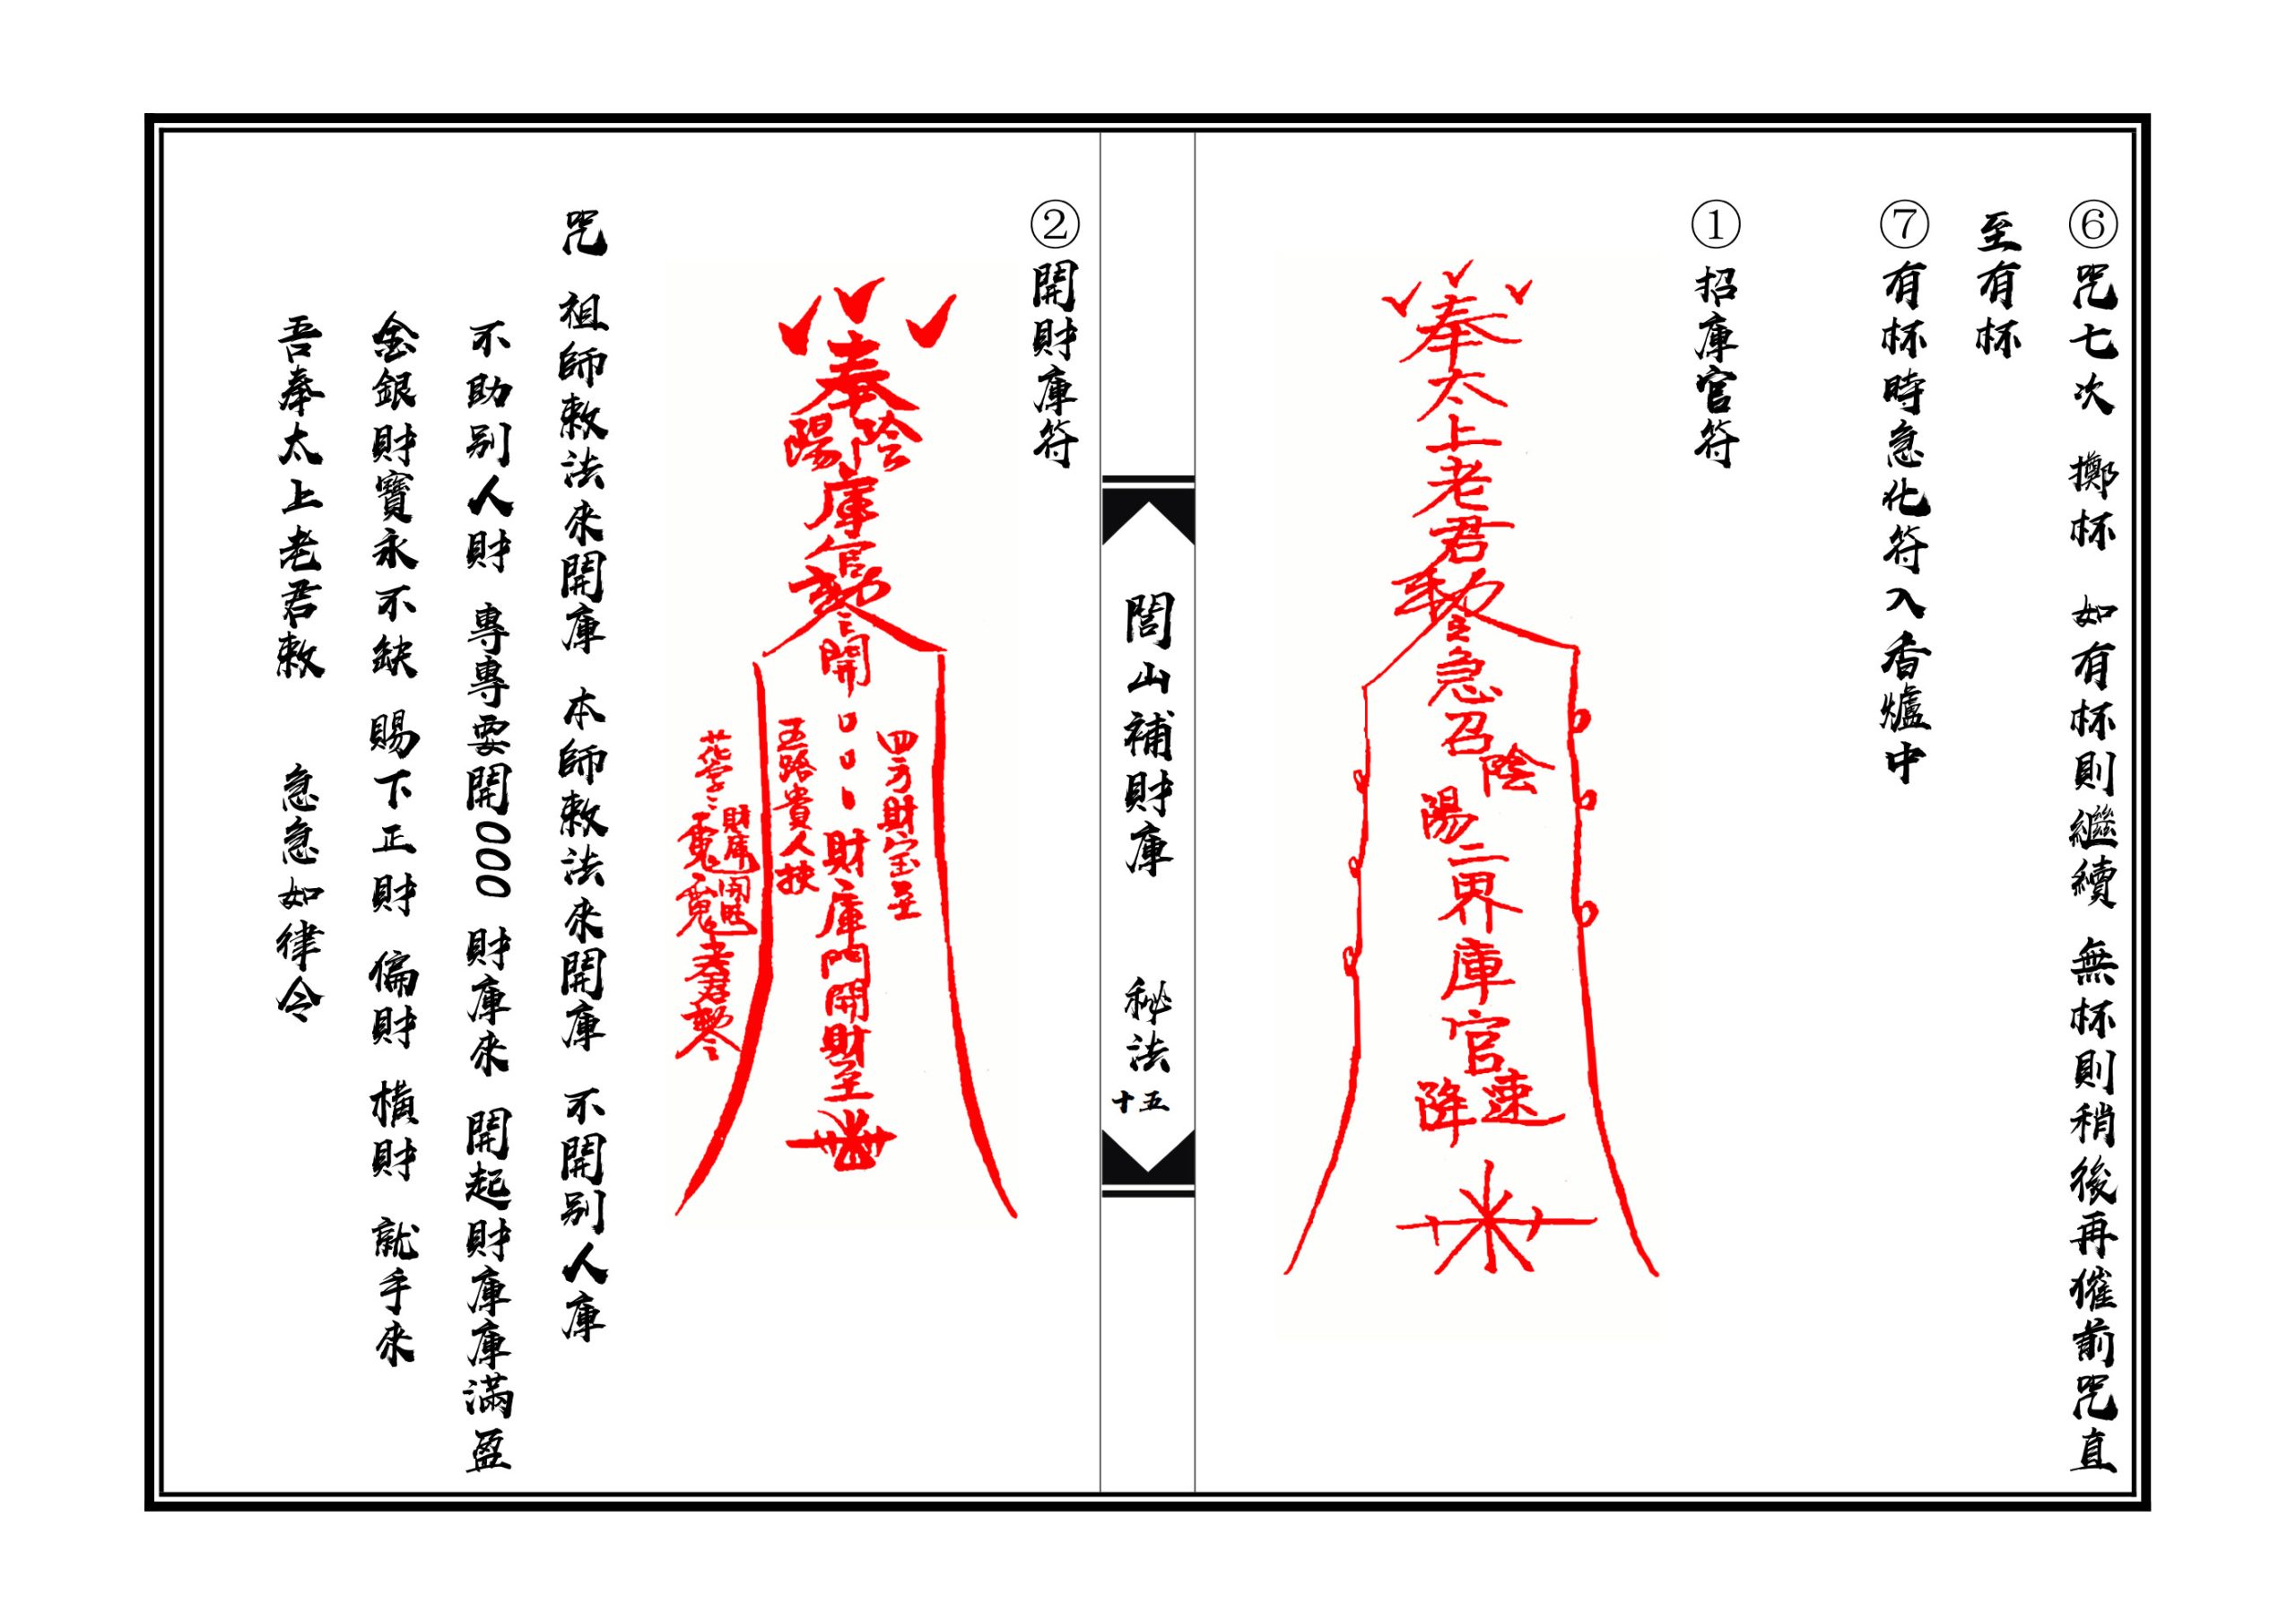 ⑥咒七次 擲杯 如有杯則繼續 無杯則稍後再催前咒直
至有杯
⑦有杯時急化符入香爐中
①招庫官符
奉太上老君
急召
陰陽二界庫官速降
閭山補財庫 秘法
十五
②開財庫符
奉
陰陽庫官
開
四方財宝至
財庫門開財至
五路貴人扶
咒 祖師敕法來開庫 本師敕法來開庫 不開別人庫
不助別人財 專專要開000 財庫來 開起財庫庫滿盈
金銀財寶永不缺 賜下正財 偏財 橫財 就手來
吾奉太上老君敕 急急如律令